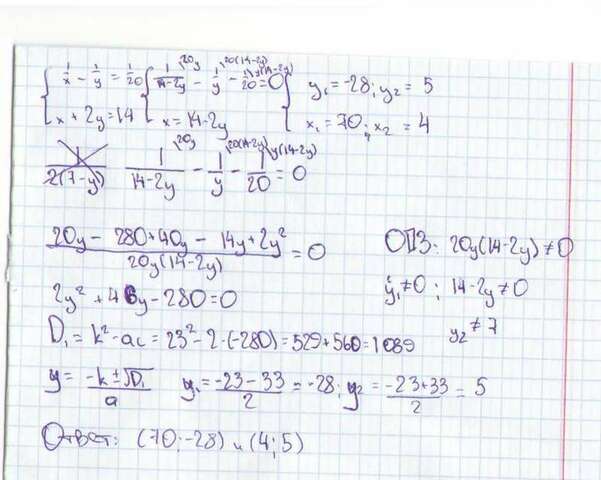 { 1/x - 1/y = 1/20 { 1/(14-2y) ^20y - 1/y ^20(14-2y) - 1/20 ^y(14-2y) = 0 { y₁ = -28; y₂ = 5
x + 2y = 14 x = 14-2y x₁ = 70; x₂ = 4
1/2(7-y) 1/(14-2y) ^20y - 1/y ^20(14-2y) - 1/20 ^y(14-2y) = 0
(20y - 280 + 40y - 14y + 2y²)/(20y(14-2y)) = 0 ОПЗ: 20y(14-2y) ≠ 0
2y² + 46y - 280 = 0 y₁ ≠ 0; 14-2y ≠ 0
D₁ = k² - ac = 23² - 2·(-280) = 529 + 560 = 1089 y₂ ≠ 7
y = (-k ± √D₁)/a y₁ = (-23 - 33)/2 = -28; y₂ = (-23 + 33)/2 = 5
Ответ: (70; -28) и (4; 5)